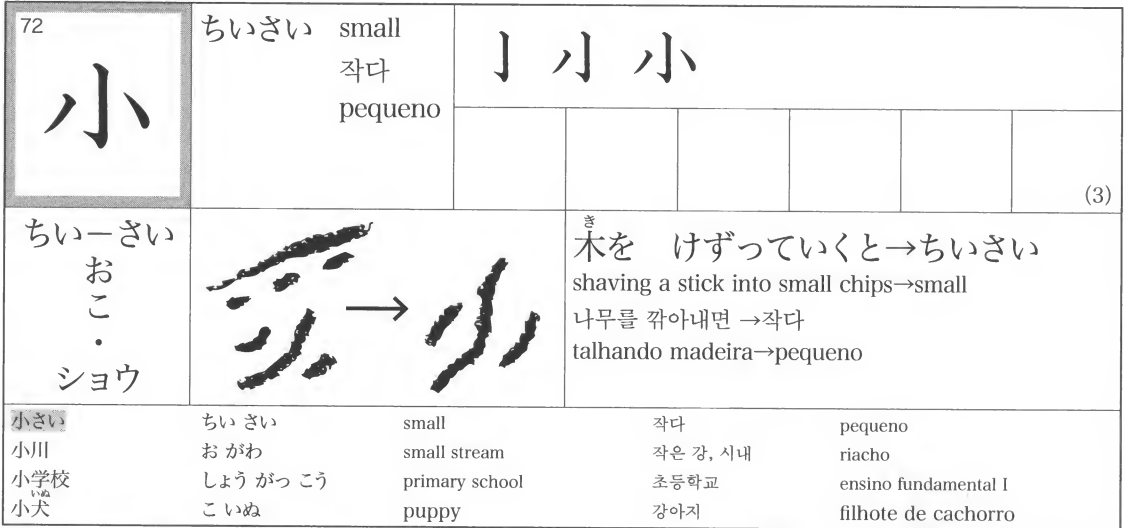 72
小
ちいさい small
작다
pequeno
亅 小 小
(3)
ちい－さい
お
こ
・
ショウ
→
き
木を けずっていくと→ちいさい
shaving a stick into small chips→small
나무를 깎아내면 →작다
talhando madeira→pequeno
小さい ちい さい small 작다 pequeno
小川 お がわ small stream 작은 강, 시내 riacho
小学校 しょう がっ こう primary school 초등학교 ensino fundamental I
いぬ
小犬 こ いぬ puppy 강아지 filhote de cachorro